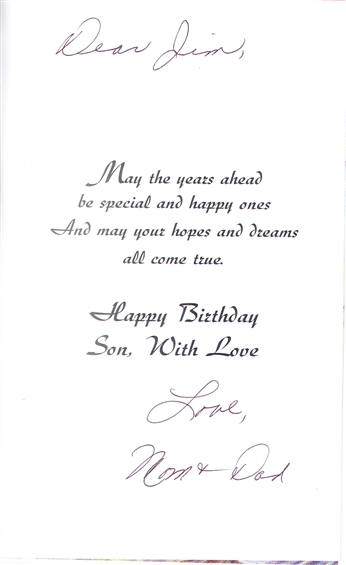 Dear Jim,
May the years ahead
be special and happy ones
And may your hopes and dreams
all come true.
Happy Birthday
Son, With Love
Love,
Mom + Dad